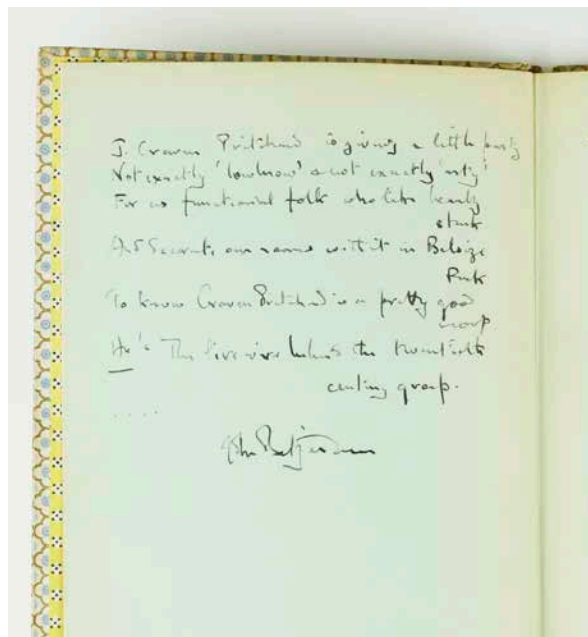 J. Craven Pritchard is giving a little party
Not exactly 'lowbrow' & not exactly 'arty'
For us functional folk who like beauty
stark
And our names with it in Belsize
Park
To know Craven Pritchard is a pretty good
scoop
He's The live wire behind the twentieth
century group.
....
John Betjeman